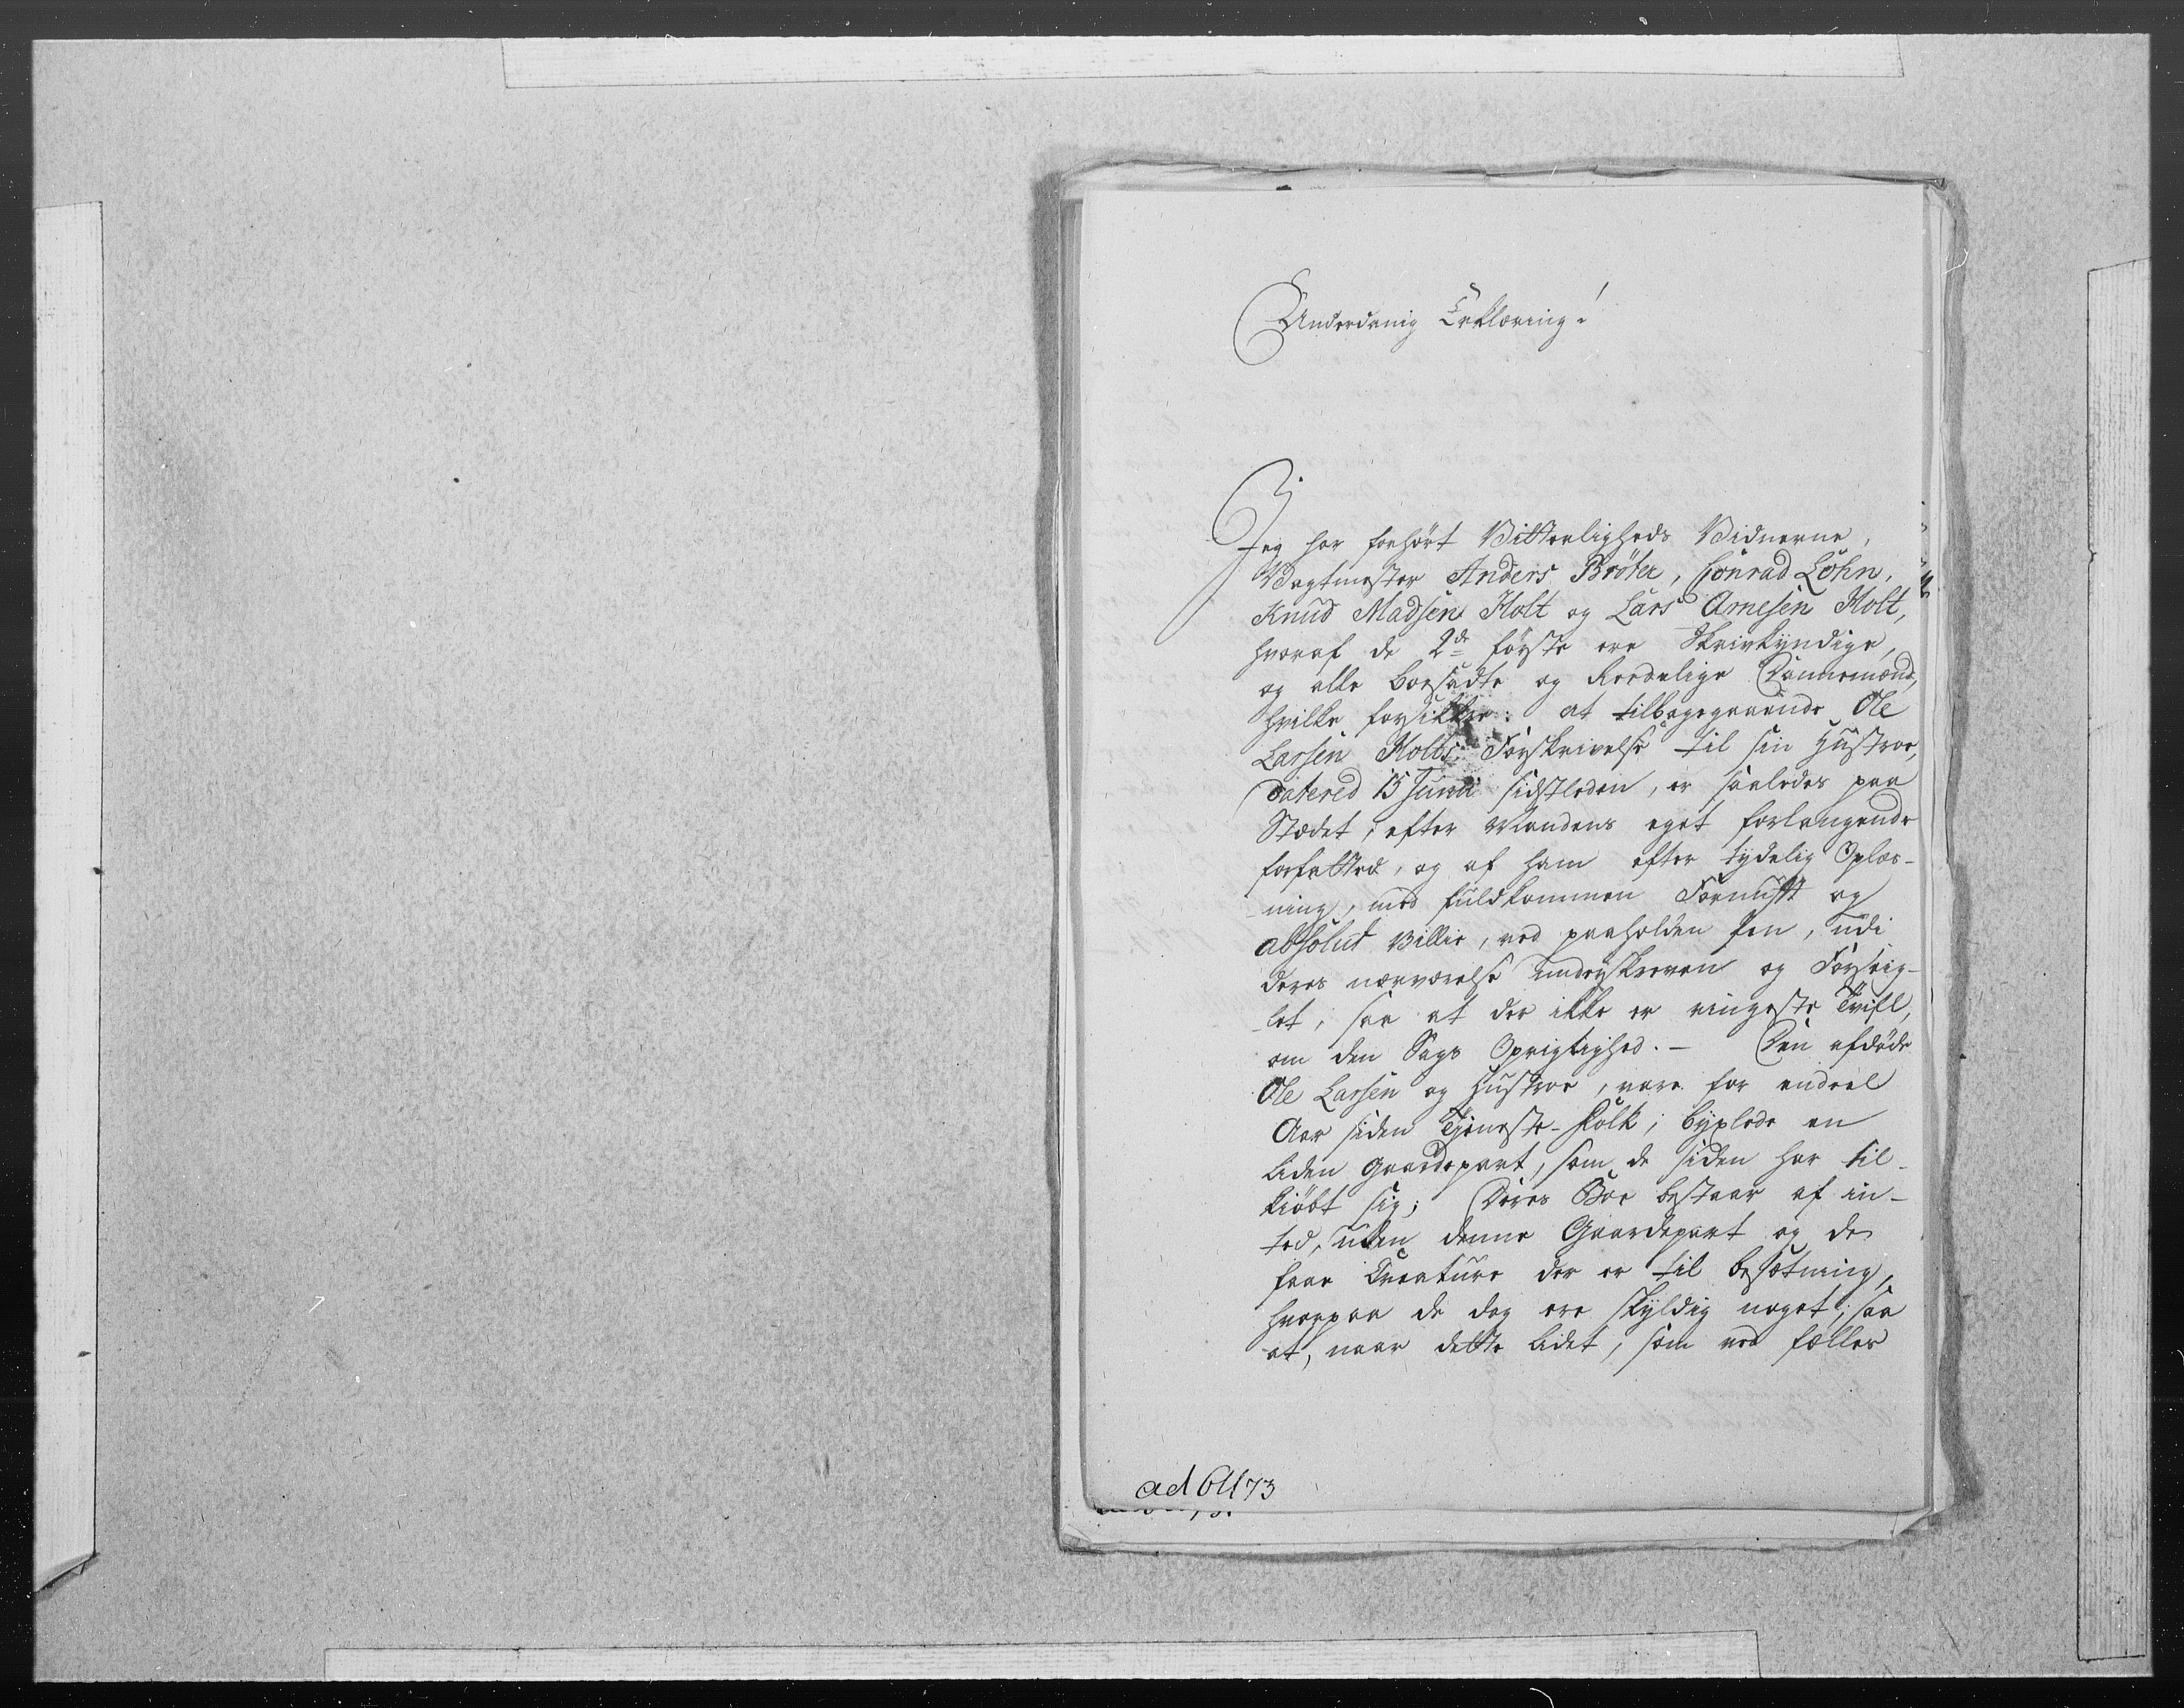 Underdanig Erklæring!
Jeg har forhørt Vitterligheds Vidnerne,
Vagtmester Anders Bröter, Conrad Löhn,
Knud Madsen Holt og Lars Arnesen Holt,
hvoraf de 2de første ere Skrivkyndige,
og alle boesadte og Reedelige Dannemænd,
hvilke forsikkre: at tilbagegaaende Ole
Larsen Holts Forskrivelse til sin Hustroe,
Datered 15 Junii sidstleden, er saaledes paa
Stædet, efter Mandens eget forlangende
forfatted, og af ham efter tydelig Oplæs-
ning, med fuldkommen Fornuft og
absolut Villie, ved paaholden Pen, udi
deres nærværelse underskreven og Forseig-
let, saa at der ikke er ringeste Tvifl,
om den Sags Oprigtighed. - Den afdøde
Ole Larsen og Hustroe, vare for endeel
Aar siden Tjeneste-Folk, byxlede en
liden Gaardepart, som de siden har til-
kiöbt sig; Deres Boe bestaar af in-
ted, uden denne Gaardepart og de
faae Creature der er til besætning,
hvorpaa de dog ere skyldig noget; saa
at, naar dette lidet, som ved fælles
ad 611/73